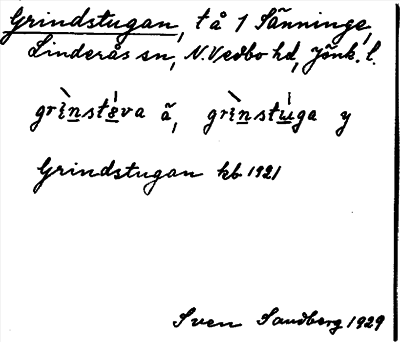 Grindstugan, t å 1 Sänninge,
Linderås sn, N. Vedbo hd, Jönk. l.
grìnstɵ́va ä, grìnstúga y
Grindstugan kb 1921
Sven Sandberg 1929